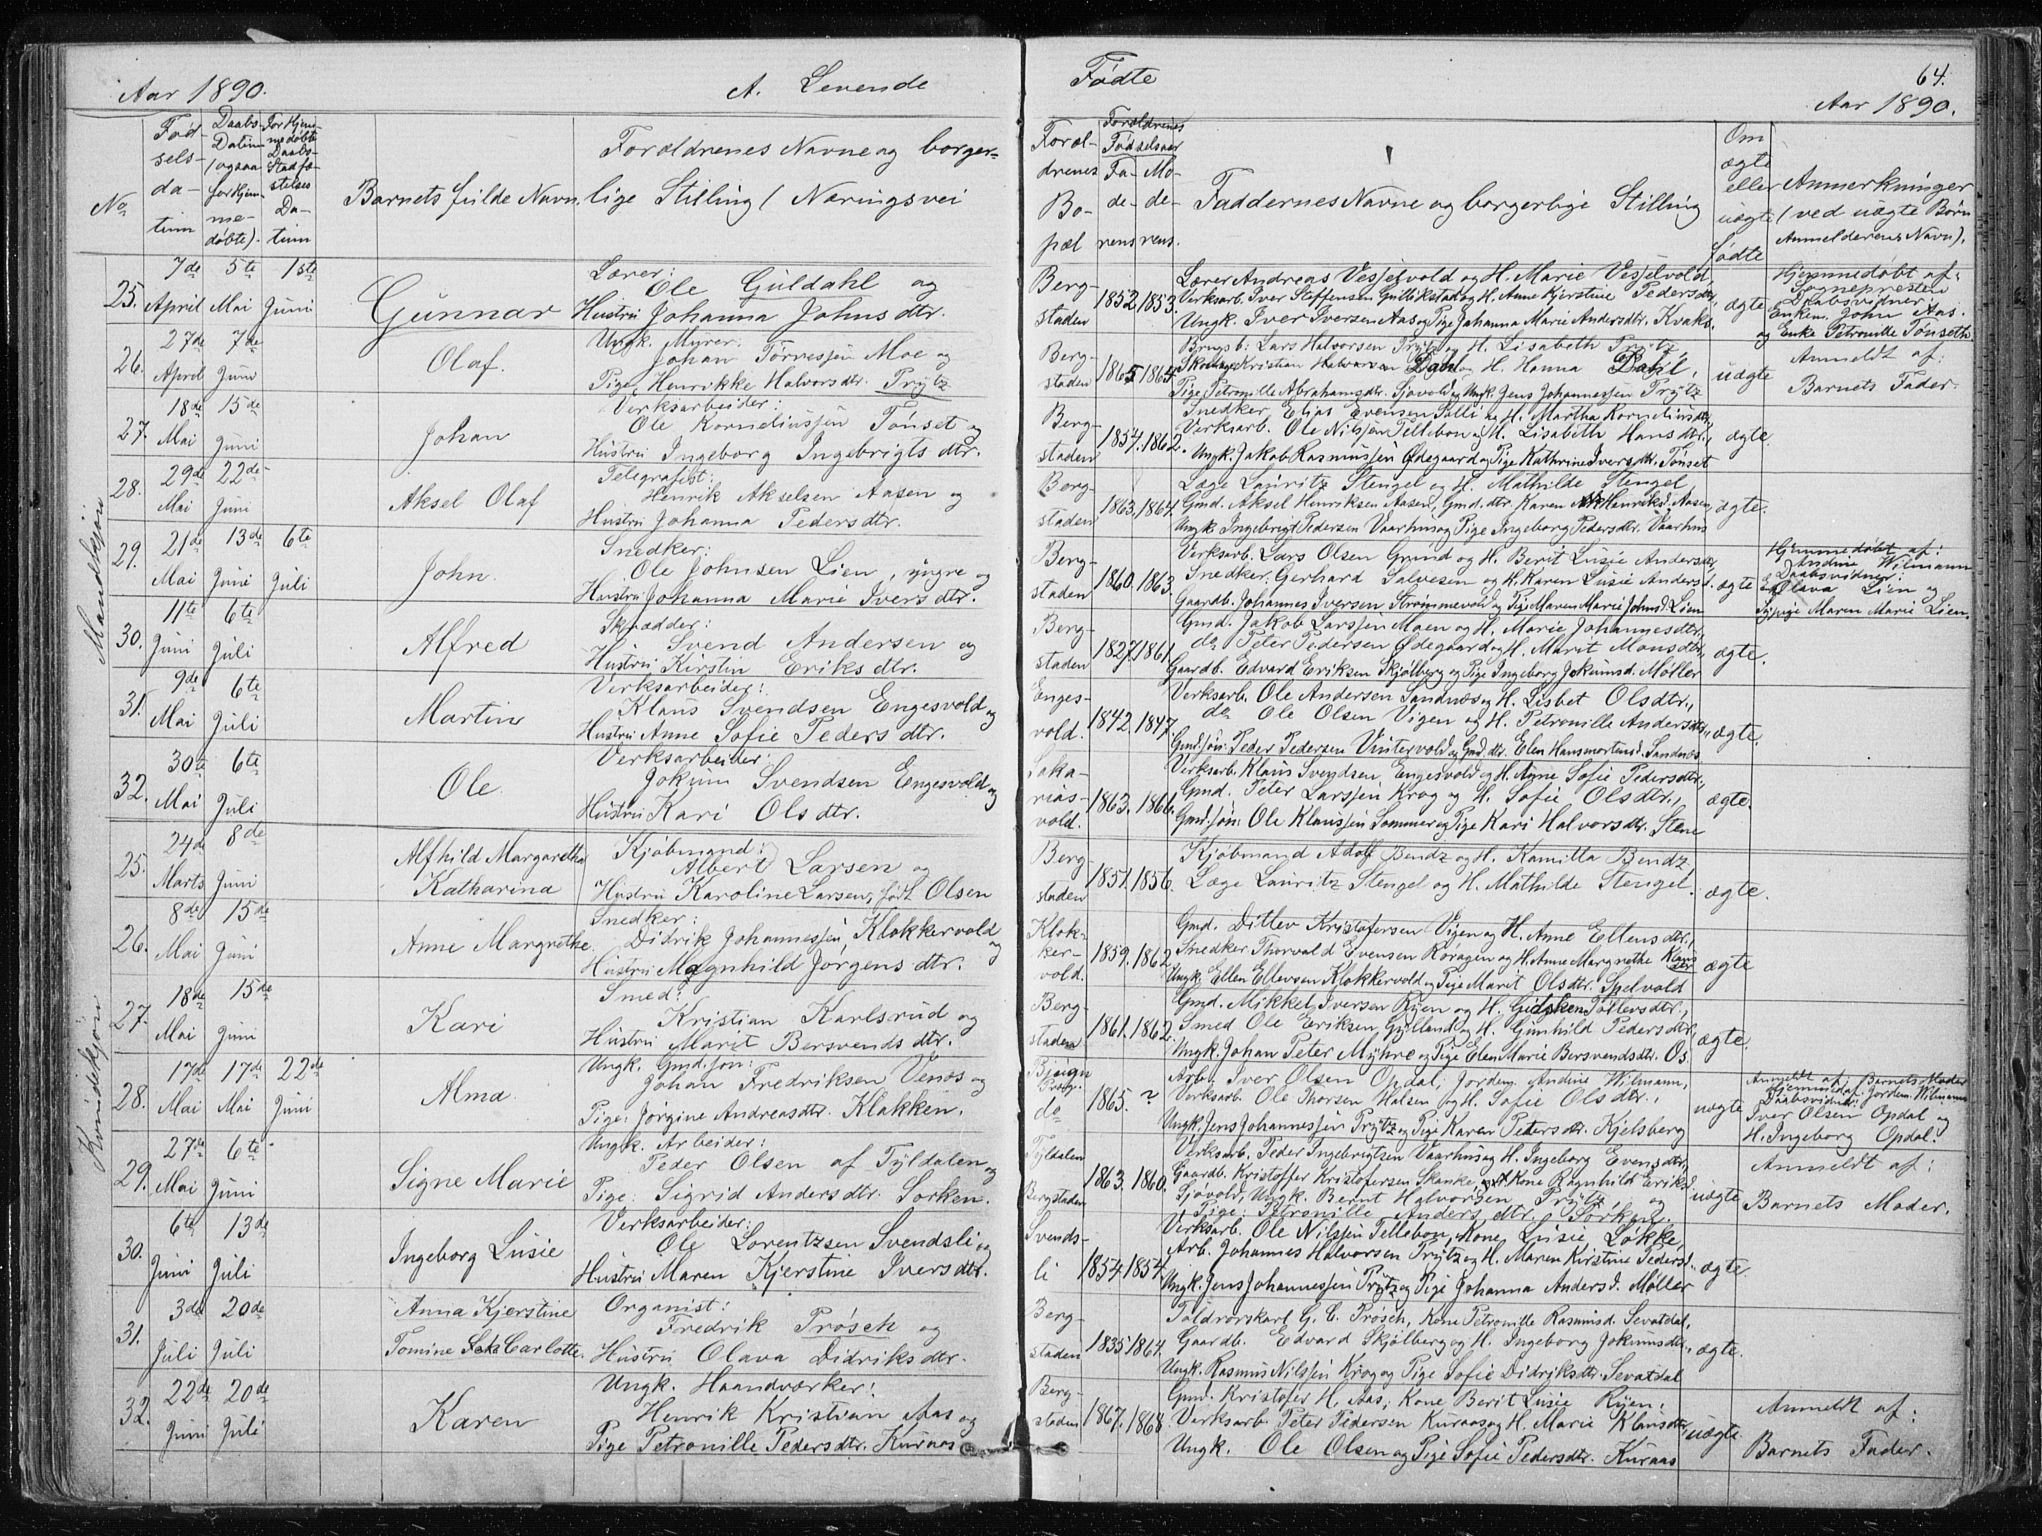 Aar 1890.
A. Levende
Fødte
64.
Aar 1890.
No
Fød-
sels-
da-
tum
Daabs-
Datum
(ogsaa
for Hjem-
me-
døbte).
For Hjem-
medøbte
Daabs-
Stadfæ-
stelses
Da-
tum
Barnets fulde Navn.
Forældrenes Navne og borger-
lige Stilling (Næringsvei
Foræl-
drenes
Bo-
pæl
Forældrenes
Fødselsaar
Fa-
de-
rens
Mo-
de-
rens.
Faddernes Navne og borgerlige Stilling
Om
ægte
eller
uægte
fødte
Anmerkninger
(ved uægte Børn
Anmelderens Navn).
Mandkjøn
25.
7de
April
5te
Mai
1ste
Juni
Gunnar
Lærer:
Ole Guldahl og
Hustru Johanna Johnsdtr.
Berg-
staden
1852. 1853.
Lærer Andreas Vesjelvold og H. Marie Vesjelvold,
Verksarb. Iver Steffensen Gullikstad og H. Anne Kjerstine Pedersdtr,
Ungk. Iver Iversen Aas og Pige Johanna Marie Andersdtr. Kvaks.
ægte
Hjemmedøbt af:
Sognepresten
Daabsvidner:
Enkem. John Aas.
og Enke Petronille Tønseth
26.
27de
April
7de
Juni
Olaf.
Ungk. Myrer:
Johan Torressen Moe og
Pige, Henrikke Halvorsdtr. Prytz
Berg-
staden
1865 1865
Brugsb. Lars Halvorsen Prytz og H. Lisabeth Prytz,
Skomager Kristian Halvorsen Dahl og H. Hanna Dahl,
Pige Petronille Abrahamsdtr. Sjovold og Ungk. Jens Johannessen Prytz
uægte
Anmeldt af:
Barnets Fader.
27.
18de
Mai
15de
Juni
Johan
Verksarbeider:
Ole Korneliussen Tønset og
Hustru Ingeborg Ingebrigtsdtr.
Berg-
staden
1854. 1862.
Snedker Elias Evensen Solli og H. Martha Korneliusdtr,
Verksarb. Ole Nilssen Tellebon og H. Lisabeth Hansdtr.,
Ungk. Jakob Rasmussen Ødegaard og Pige Kathrine Iversdtr. Tønset
ægte.
28.
29de
Mai
22de
Juni
Aksel Olaf
Telegrafist:
Henrik Akselsen Aasen og
Hustru Johanna Pedersdtr.
Berg-
staden
1863. 1864.
Læge Lauritz Stengel og H. Mathilde Stengel
Gmd. Aksel Henriksen Aasen, Gmd.dtr. Karen Henriksd. Aasen,
Ungk. Ingebrigt Pedersen Vaarhus og Pige Ingeborg Pedersdtr. Vaarhus
ægte.
29.
21de
Mai
13de
Juni
6te
Juli
John.
Snedker:
Ole Johnsen Lien, yngre og
Hustru Johanna Marie Iversdtr.
Berg-
staden
1860. 1863.
Verksarb. Lars Olsen Grind og H. Berit Lusie Andersdtr,
Snedker. Gerhard Salvesen og H. Karen Lusie Andersd.
Gaardb. Johannes Iversen Strømmevold og Pige Maren Marie Johnsd. Lien
ægte
Hjemmedøbt af:
Andine Wilmann
Daabsvidner:
Olava Lien og
Pige Maren Marie Lien.
30.
11te
Juni
6te
Juli
Alfred
Skrædder:
Svend Andersen og
Hustru Kirstin Eriksdtr.
Berg-
staden
1827. 1861.
Gmd. Jakob Larssen Moen og H. Marie Johannesdtr.,
do Peter Pedersen Ødegaard og H. Marit Monsdtr.,
Gaardb. Edvard Eriksen Skjølberg og Pige Ingeborg Jokumsd. Møller
ægte.
31.
9de
Mai
6te
Juli
Martin
Verksarbeider:
Klaus Svendsen Engesvold og
Hustru Anne Sofie Pedersdtr.
Enges-
vold.
1842. 1847.
Verksarb. Ole Andersen Sandnæs og H. Lisbet Olsdtr.,
do Ole Olsen Vigen og H. Petronille Andersdtr.,
Gmd.søn: Peder Pedersen Vintervold og Gmd.dtr. Elen Hansmortensd. Sandnæs
ægte.
32.
30te
Mai
6te
Juli
Ole.
Verksarbeider:
Jokum Svendsen Engesvold og
Hustru Kari Olsdtr.
Saka-
rias-
vold.
1863. 1866.
Verksarb. Klaus Svendsen Engesvold og H. Anne Sofie Pedersdtr.,
Gmd. Peter Larssen Krog og H. Sofie Olsdtr.,
Gmd.søn: Ole Klaussen Sommer og Pige Kari Halvorsdtr. Stene
ægte.
Kvindekjøn
25.
24de
Marts
8de
Juni
Alfhild Margaretha
Katharina
Kjøbmand:
Albert Larsen og
Hustru Karoline Larsen, født Olsen
Berg-
staden
1851. 1856.
Kjøbmand Adolf Bendz og H. Kamilla Bendz
Læge Lauritz Stengel og H. Mathilde Stengel.
ægte.
26.
8de
Mai
15de
Juni
Anne Margrethe.
Snedker:
Didrik Johannessen Klokkervold og
Hustru Magnhild Jørgensdtr.
Klok-
ker-
vold.
1859. 1862.
Gmd. Ditlev Kristofersen Vigen og H. Anne Ellensdtr.,
Snedker Thorvald Evensen Røragen og H. Anne Margrethe Klausdtr
Ungk. Ellen Ellevsen Klokkervold og Pige Marit Olsdtr. Spelvold
ægte
27.
18de
Mai
15de
Juni
Kari
Smed:
Kristian Karlsrud og
Hustru Marit Bersvendsdtr.
Berg-
staden
1861. 1862.
Gmd. Mikkel Iversen Ryen og H. Gidsken Tollevsdtr.,
Smed Ole Eriksen Gylland og H. Gunhild Pedersdtr.,
Ungk. Johan Peter Myhre og Pige Elen Marie Bersvendsdtr. Os.
ægte.
28.
17de
Mai
17de
Mai
22de
Juni
Alma.
Ungk. Gmd.søn:
Johan Fredriksen Venøs og
Pige: Jørgine Andreasdtr. Klokken.
do
1865. ?
Arb. Iver Olsen Opdal, Jordem. Andine Wilmann,
Verksarb. Ole Thorsen Halsen og H. Sofie Olsdtr.,
Ungk. Jens Johannessen Prytz og Pige Karen Pedersdtr. Kjelsberg
uægte
Anmeldt af Barnets Moder
Hjemmedøbt af Jordem. Wilmann
Daabsvidner:
Iver Olsen Opdal og
H. Ingeborg Opdal.
29.
27de
Mai
6te
Juni
Signe Marie
Ungk. Arbeider:
Peder Olsen af Tyldalen og
Pige: Sigrid Andersdtr. Sorken.
Tyldalen
Bergstaden
1863. 1860.
Verksarb. Peder Ingebrigtsen Vaarhus og H. Ingeborg Evensdtr.,
Gaardb. Kristoffer Kristofersen Skanke og Kone Ragnhild Eriksd.
Sjovold, Ungk. Bernt Halvorsen Prytz, og
Pige: Petronille Andersdtr. Sorken.
uægte
Anmeldt af:
Barnets Moder.
30.
6te
Juni
13de
Juli
Ingeborg Lusie
Verksarbeider:
Ole Lorentzsen Svendsli og
Hustru Maren Kjerstine Iversdtr.
Svends-
li
1854. 1854.
Verksarb. Ole Nilssen Tellebon, Kone Lusie Løkke,
Arb. Johannes Halvorsen Prytz og H. Maren Kristine Pedersd.,
Ungk. Jens Johannessen Prytz og Pige Johanna Andersd. Møller
ægte.
31.
3de
Juli
20de
Juli
Anna Kjerstine
Tomine Carlotte.
Organist:
Fredrik Prösch og
Hustru Olava Didriksdtr.
Berg-
staden
1835 1864.
Toldrorskarl G. C. Prösch, Kone Petronille Rasmusd. Sevatdal,
Gaardb. Edvard Skjølberg og H. Ingeborg Jokumsdtr.,
Ungk. Rasmus Nilssen Krog og Pige Sofie Didriksdtr. Sevatdal
ægte.
32.
22de
Juni
20de
Juli
Karen
Ungk. Haandværker:
Henrik Kristian Aas og
Pige Petronille Pedersdtr. Kuraas
Berg-
staden
1867. 1868
Gmd. Kristofer H. Aas, Kone Berit Lusie Ryen,
Verksarb. Peter Pedersen Kuraas og H. Marie Klausdtr,
Ungk. Ole Olsen og Pige Sofie Pedersdtr. Kuraas
uægte
Anmeldt af:
Barnets Fader.